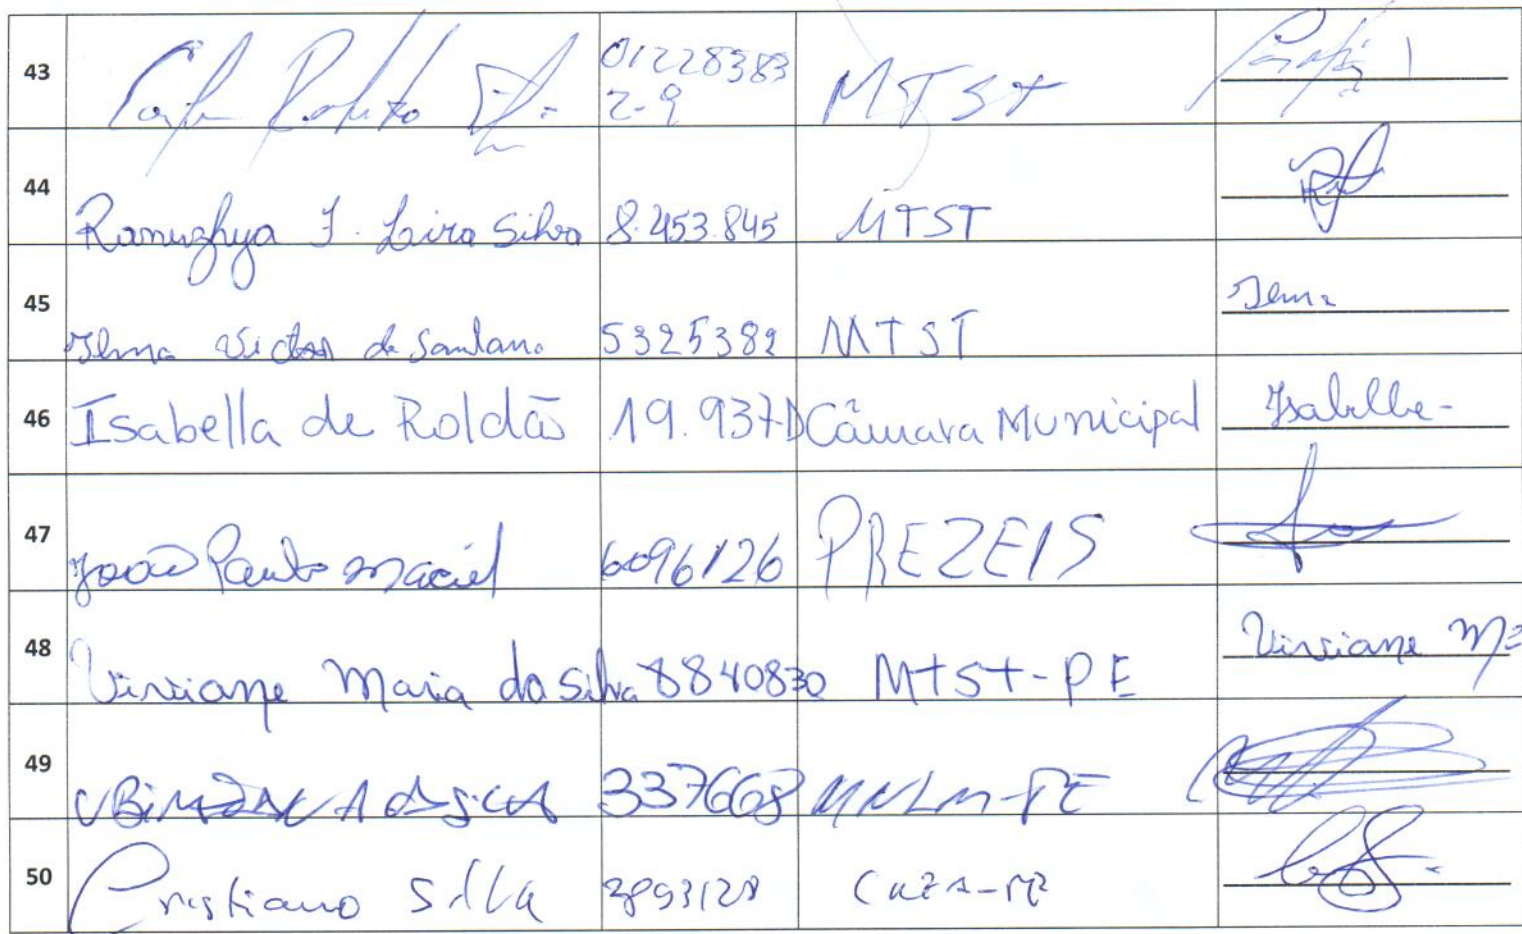 43 Roberto 01228383 MTST
2-9
44 Ranuzhya J. Lira Silva 8.453.845 MTST
45 Ilma Victor de Santana 5325382 MTST Ilma
46 Isabella de Roldão 19.937-D Câmara Municipal Isabella
47 João Paulo Maciel 6096126 PREZEIS
48 Viviane Maria da Silva 8840830 MTST-PE Viviane Mª
49 337668 MNLM-PE
50 Cristiano Silva